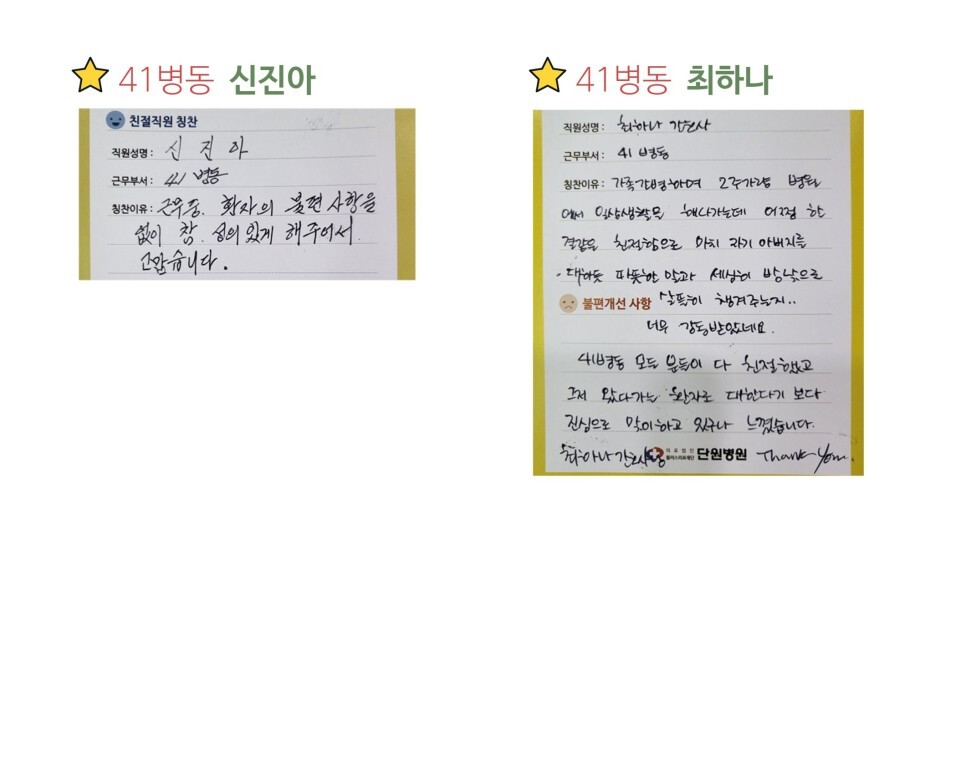 41병동 신진아
친절직원 칭찬
직원성명 : 신 진 아
근무부서 : 41 병동
칭찬이유 : 근무중. 환자의 불편 사항을
없이 참. 성의있게 해주어서.
고맙습니다.
41병동 최하나
직원성명 : 최하나 간호사
근무부서 : 41 병동
칭찬이유 : 가족간병하며 2주가량 병원
에서 일상생활을 해나가는데 어쩜 한
결같은 친절함으로 마치 자기 아버지를
대하듯 따뜻한 말과 세심히
불편개선 사항 살뜰히 챙겨주는지..
너무 감동받았네요.
41병동 모든 분들이 다 친절했고
그저 왔다가는 환자로 대한다기 보다
진심으로 맞이하고 있구나 느꼈습니다.
최하나 간호사님 의료법인 플러스의료재단 단원병원 Thank You.